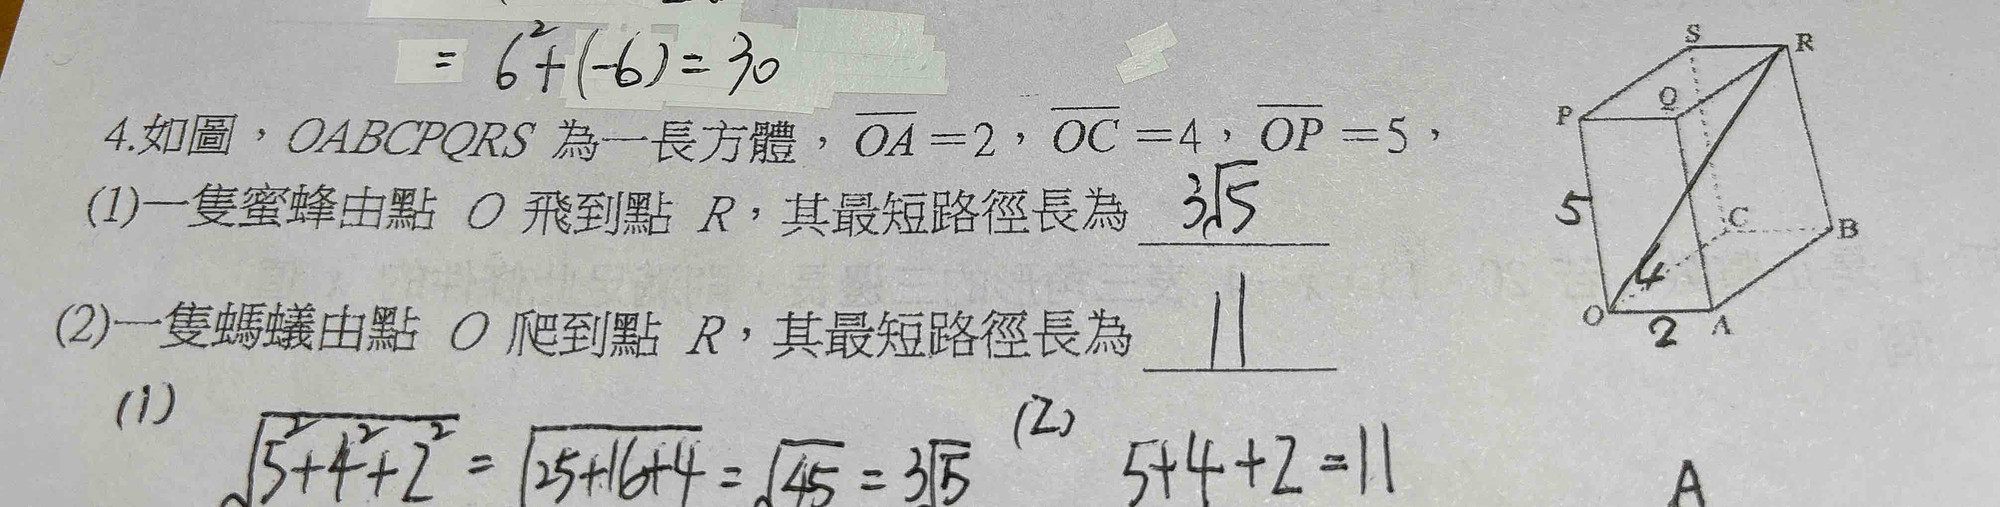 = 6²+(-6)=30
4.如圖，OABCPQRS 為一長方體，OA=2，OC=4，OP=5，
(1)一隻蜜蜂由點 O 飛到點 R，其最短路徑長為 3√5
(2)一隻螞蟻由點 O 爬到點 R，其最短路徑長為 11
(1) √5²+4²+2² = √25+16+4 = √45 = 3√5
(2) 5+4+2=11
A
S
R
P
Q
5
C
B
4
O
2
A